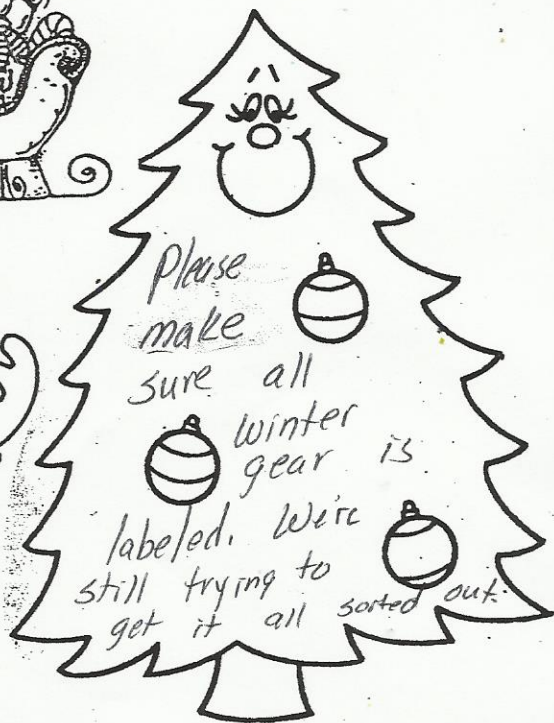 Please
make
sure all
winter
gear is
labeled. We're
still trying to
get it all sorted out.